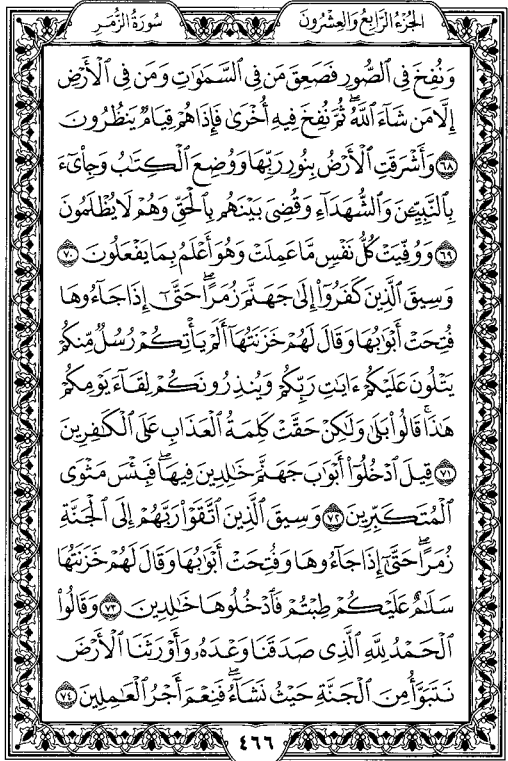 الجزء الرابع والعشرون
سورة الزمر
وَنُفِخَ فِي ٱلصُّورِ فَصَعِقَ مَن فِي ٱلسَّمَٰوَٰتِ وَمَن فِي ٱلْأَرْضِ
إِلَّا مَن شَآءَ ٱللَّهُ ۖ ثُمَّ نُفِخَ فِيهِ أُخْرَىٰ فَإِذَا هُمْ قِيَامٌ يَنظُرُونَ
٦٨ وَأَشْرَقَتِ ٱلْأَرْضُ بِنُورِ رَبِّهَا وَوُضِعَ ٱلْكِتَٰبُ وَجِا۟ىٓءَ
بِٱلنَّبِيِّـۧنَ وَٱلشُّهَدَآءِ وَقُضِيَ بَيْنَهُم بِٱلْحَقِّ وَهُمْ لَا يُظْلَمُونَ
٦٩ وَوُفِّيَتْ كُلُّ نَفْسٍ مَّا عَمِلَتْ وَهُوَ أَعْلَمُ بِمَا يَفْعَلُونَ ٧٠
وَسِيقَ ٱلَّذِينَ كَفَرُوٓا۟ إِلَىٰ جَهَنَّمَ زُمَرًا ۖ حَتَّىٰٓ إِذَا جَآءُوهَا
فُتِحَتْ أَبْوَٰبُهَا وَقَالَ لَهُمْ خَزَنَتُهَآ أَلَمْ يَأْتِكُمْ رُسُلٌ مِّنكُمْ
يَتْلُونَ عَلَيْكُمْ ءَايَٰتِ رَبِّكُمْ وَيُنذِرُونَكُمْ لِقَآءَ يَوْمِكُمْ
هَٰذَا ۚ قَالُوا۟ بَلَىٰ وَلَٰكِنْ حَقَّتْ كَلِمَةُ ٱلْعَذَابِ عَلَى ٱلْكَٰفِرِينَ
٧١ قِيلَ ٱدْخُلُوٓا۟ أَبْوَٰبَ جَهَنَّمَ خَٰلِدِينَ فِيهَا ۖ فَبِئْسَ مَثْوَى
ٱلْمُتَكَبِّرِينَ ٧٢ وَسِيقَ ٱلَّذِينَ ٱتَّقَوْا۟ رَبَّهُمْ إِلَى ٱلْجَنَّةِ
زُمَرًا ۖ حَتَّىٰٓ إِذَا جَآءُوهَا وَفُتِحَتْ أَبْوَٰبُهَا وَقَالَ لَهُمْ خَزَنَتُهَا
سَلَٰمٌ عَلَيْكُمْ طِبْتُمْ فَٱدْخُلُوهَا خَٰلِدِينَ ٧٣ وَقَالُوا۟
ٱلْحَمْدُ لِلَّهِ ٱلَّذِي صَدَقَنَا وَعْدَهُۥ وَأَوْرَثَنَا ٱلْأَرْضَ
نَتَبَوَّأُ مِنَ ٱلْجَنَّةِ حَيْثُ نَشَآءُ ۖ فَنِعْمَ أَجْرُ ٱلْعَٰمِلِينَ ٧٤
٤٦٦